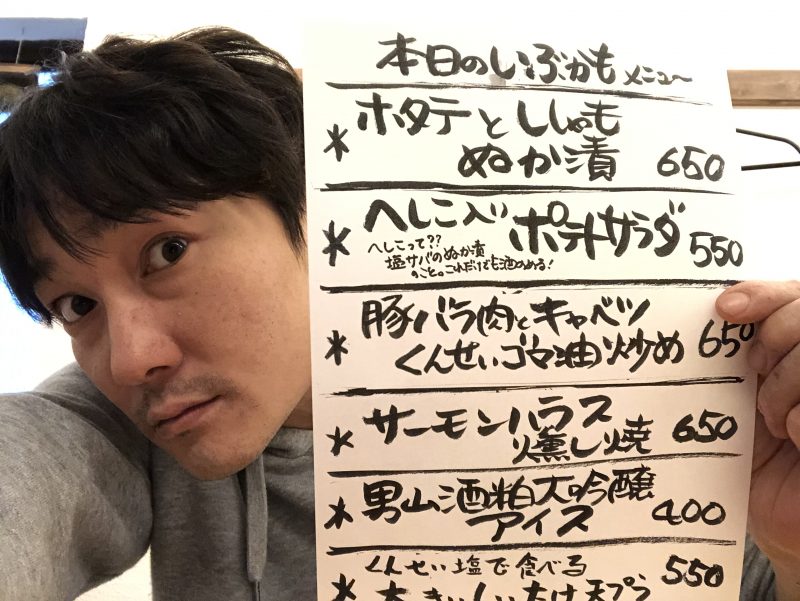 本日のいぶかもメニュー
* ホタテとししゃも
ぬか漬 650
* へしこ入りポテトサラダ 550
へしこって??
塩サバのぬか漬
のこと。これだけでも酒のめる!
* 豚バラ肉とキャベツ
くんせいゴマ油炒め 650
* サーモンハラス
燻し焼 650
* 男山酒粕大吟醸
アイス 400
くんせい塩で食べる 550
* 大きいしいたけ天プラ